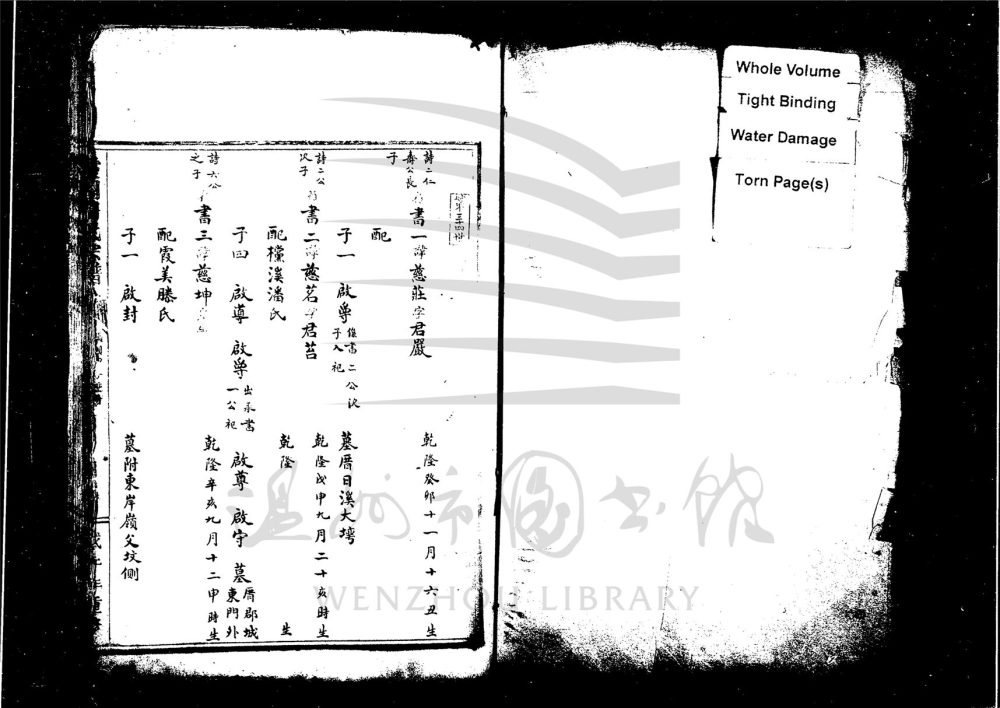 詩二仁
壽公長
子
書一諱慈莊字君嚴
乾隆癸卯十一月十六丑生
配
子一 啟學
係書二公次
子入祀
墓厝日溪大塆
詩二公
次子
書二諱慈茗字君苔
乾隆戊申九月二十亥時生
配檯溪潘氏
乾隆 生
子四 啟尊 啟學
出承書
一公祀
啟尊 啟守 墓
厝郡城
東門外
詩六公
之子
書三諱慈坤
乾隆辛亥九月十二甲時生
配霞美滕氏
子一 啟封
墓附東岸嶺父坟側
Whole Volume
Tight Binding
Water Damage
Torn Page(s)
溫州市圖書館
WENZHOU LIBRARY